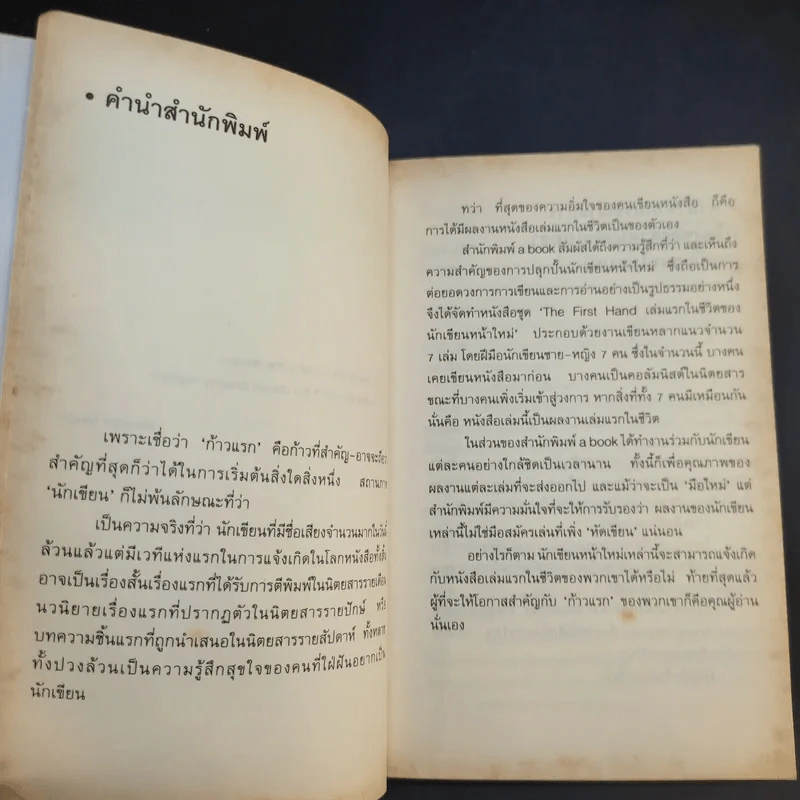 • คำนำสำนักพิมพ์
เพราะเชื่อว่า ‘ก้าวแรก’ คือก้าวที่สำคัญ-อาจจะ
สำคัญที่สุดก็ว่าได้ในการเริ่มต้นสิ่งใดสิ่งหนึ่ง
‘นักเขียน’ ก็ไม่พ้นลักษณะที่ว่า
เป็นความจริงที่ว่า นักเขียนที่มีชื่อเสียงจำนวนมากใน
ล้วนแล้วแต่มีเวทีแห่งแรกในการแจ้งเกิดในโลกหนังสือ
อาจเป็นเรื่องสั้นเรื่องแรกที่ได้รับการตีพิมพ์ในนิตยสารรายเดือน
นวนิยายเรื่องแรกที่ปรากฏตัวในนิตยสารรายปักษ์ หรือ
บทความชิ้นแรกที่ถูกนำเสนอในนิตยสารรายสัปดาห์
ทั้งปวงล้วนเป็นความรู้สึกสุขใจของคนที่ใฝ่ฝันอยากเป็น
นักเขียน
ทว่า ที่สุดของความอิ่มใจของคนเขียนหนังสือ ก็คือ
การได้มีผลงานหนังสือเล่มแรกในชีวิตเป็นของตัวเอง
สำนักพิมพ์ a book สัมผัสได้ถึงความรู้สึกที่ว่า และเห็นถึง
ความสำคัญของการปลุกปั้นนักเขียนหน้าใหม่ ซึ่งถือเป็นการ
ต่อยอดวงการการเขียนและการอ่านอย่างเป็นรูปธรรมอย่างหนึ่ง
จึงได้จัดทำหนังสือชุด ‘The First Hand เล่มแรกในชีวิตของ
นักเขียนหน้าใหม่’ ประกอบด้วยงานเขียนหลากแนวจำนวน
7 เล่ม โดยฝีมือนักเขียนชาย-หญิง 7 คน ซึ่งในจำนวนนี้ บางคน
เคยเขียนหนังสือมาก่อน บางคนเป็นคอลัมนิสต์ในนิตยสาร
ขณะที่บางคนเพิ่งเริ่มเข้าสู่วงการ หากสิ่งที่ทั้ง 7 คนมีเหมือนกัน
นั่นคือ หนังสือเล่มนี้เป็นผลงานเล่มแรกในชีวิต
ในส่วนของสำนักพิมพ์ a book ได้ทำงานร่วมกับนักเขียน
แต่ละคนอย่างใกล้ชิดเป็นเวลานาน ทั้งนี้ก็เพื่อคุณภาพของ
ผลงานแต่ละเล่มที่จะส่งออกไป และแม้ว่าจะเป็น ‘มือใหม่’ แต่
สำนักพิมพ์มีความมั่นใจที่จะให้การรับรองว่า ผลงานของนักเขียน
เหล่านี้ไม่ใช่มือสมัครเล่นที่เพิ่ง ‘หัดเขียน’ แน่นอน
อย่างไรก็ตาม นักเขียนหน้าใหม่เหล่านี้จะสามารถแจ้งเกิด
กับหนังสือเล่มแรกในชีวิตของพวกเขาได้หรือไม่ ท้ายที่สุดแล้ว
ผู้ที่จะให้โอกาสสำคัญกับ ‘ก้าวแรก’ ของพวกเขาก็คือคุณผู้อ่าน
นั่นเอง